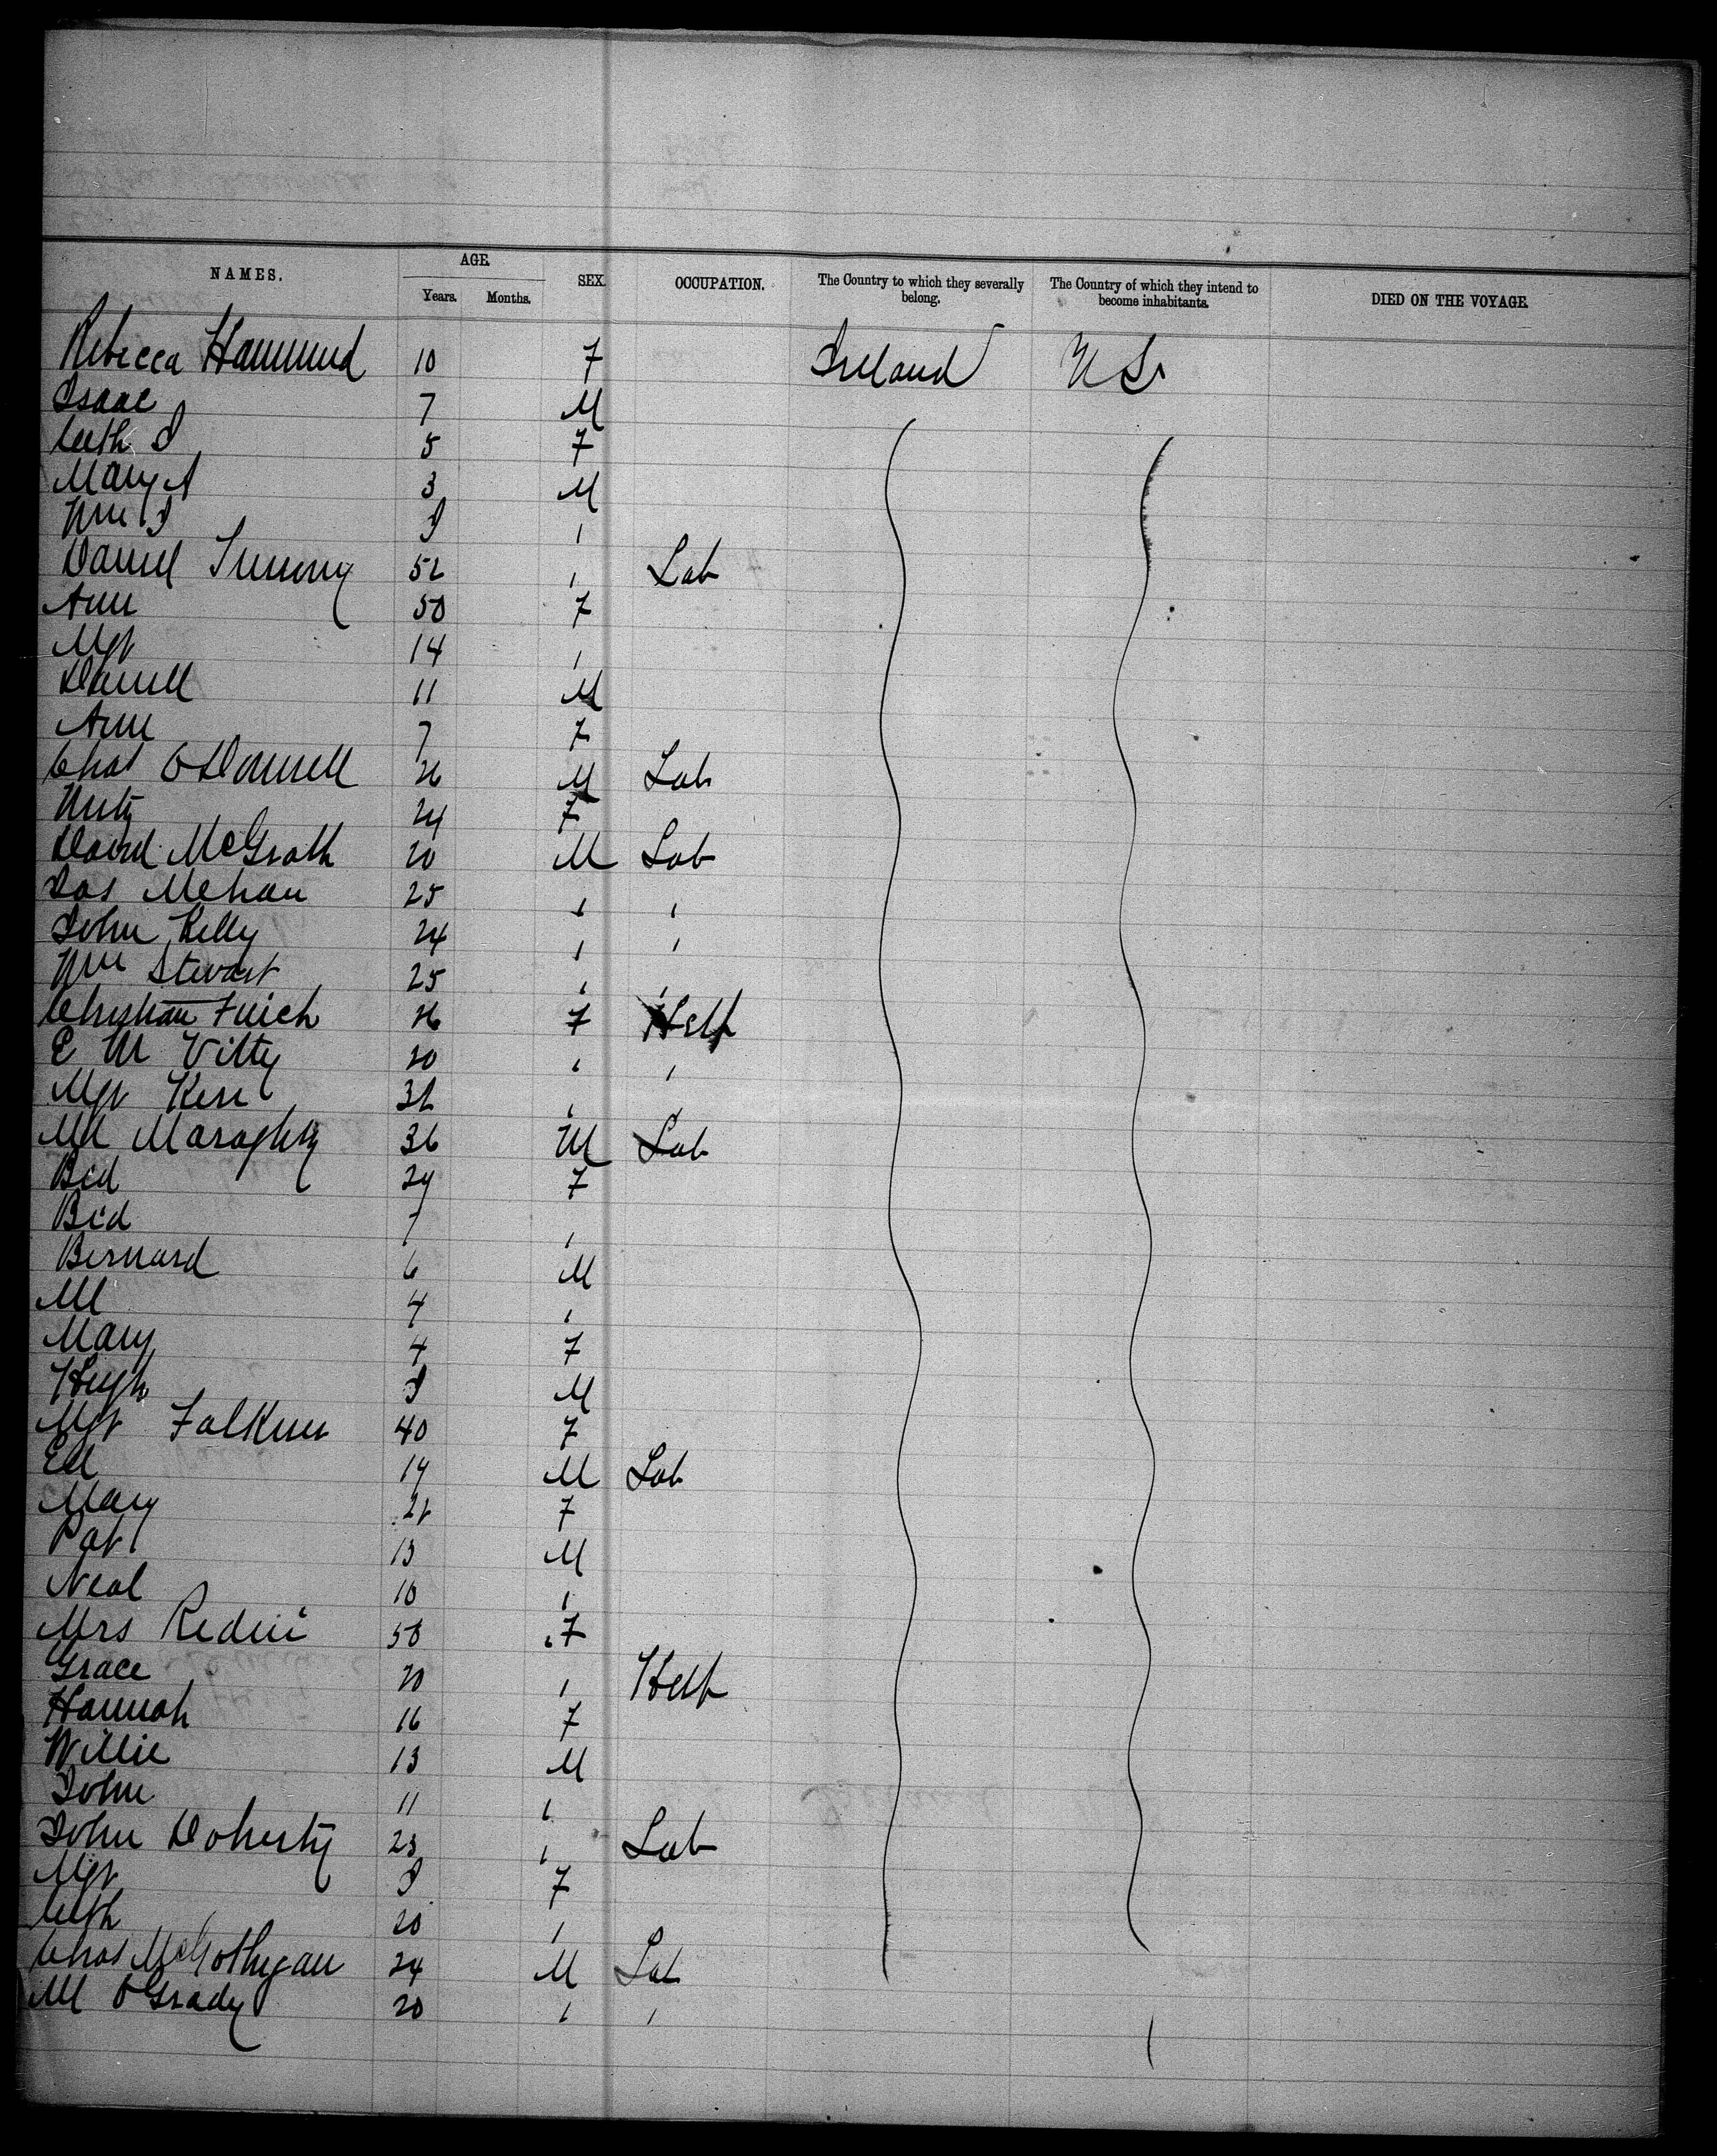 NAMES. AGE. SEX. OCCUPATION. The Country to which they severally belong. The Country of which they intend to become inhabitants. DIED ON THE VOYAGE.
Years. Months.
Rebecca Hammond 10 F Ireland US
Isaac 7 M
5 F
Mary A 3 M
Wm J
Daniel 52 " Lab
Ann 50 F
Mgt 14 "
Daniell 11 M
Ann 7 F
Chas O'Donnell 26 M Lab
24 F
David McGrath 20 M Lab
Jas Mehan 25 " "
John Kelly 24 " "
Wm Stewart 25 " "
Christian 26 F Help
E M Vitty 20 " "
Mgt Kerr "
Ml 36 M Lab
Bid 24 F
Bid 7 "
Bernard 6 M
Ml 4 "
Mary 4 F
Hugh M
Mgt Falkner 40 F
Ed 19 M Lab
Mary F
Pat 13 M
Neal 10 "
Mrs 50 F
Grace 20 " Help
Hannah 16 F
Willie 13 M
John 11 "
John Doherty 23 " Lab
Mgt F
20 "
Chas 24 M Lab
Ml O'Grady 20 " "